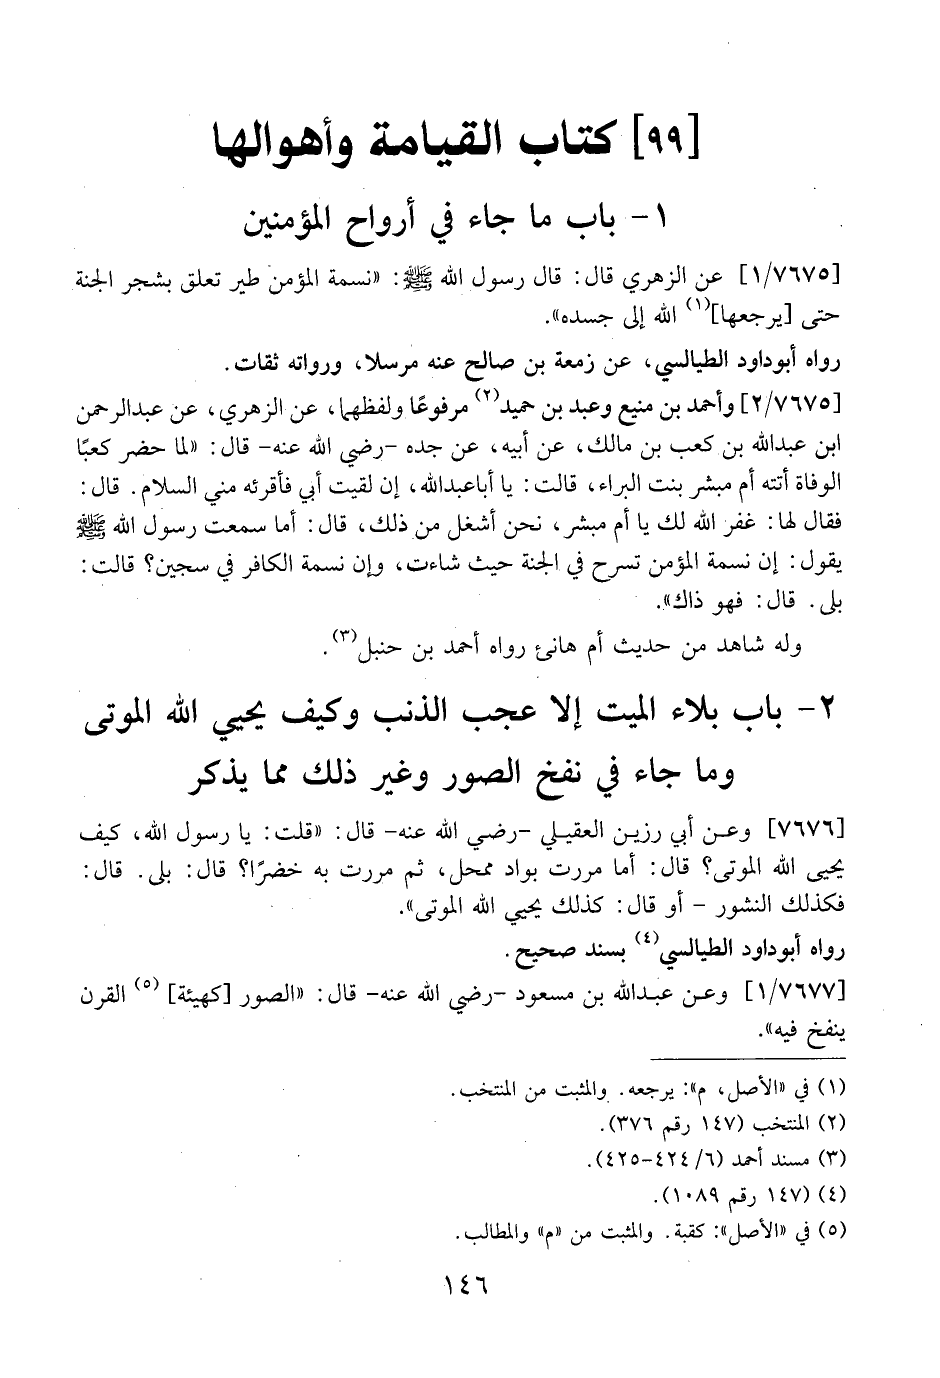 [٩٩] كتاب القيامة وأهوالها
١- باب ما جاء في أرواح المؤمنين
[١/٧٦٧٥] عن الزهري قال: قال رسول الله ﷺ: «نسمة المؤمن طير تعلق بشجر الجنة
حتى [يرجعها](١) الله إلى جسده».
رواه أبوداود الطيالسي، عن زمعة بن صالح عنه مرسلا، ورواته ثقات.
[٢/٧٦٧٥] وأحمد بن منيع وعبد بن حميد(٢) مرفوعًا ولفظهما، عن الزهري، عن عبدالرحمن
ابن عبدالله بن كعب بن مالك، عن أبيه، عن جده -رضي الله عنه- قال: «لما حضر كعبًا
الوفاة أتته أم مبشر بنت البراء، قالت: يا أباعبدالله، إن لقيت أبي فأقرئه مني السلام. قال:
فقال لها: غفر الله لك يا أم مبشر، نحن أشغل من ذلك، قال: أما سمعت رسول الله ﷺ
يقول: إن نسمة المؤمن تسرح في الجنة حيث شاءت، وإن نسمة الكافر في سجين؟ قالت:
بلى. قال: فهو ذاك».
وله شاهد من حديث أم هانئ رواه أحمد بن حنبل(٣).
٢- باب بلاء الميت إلا عجب الذنب وكيف يحيي الله الموتى
وما جاء في نفخ الصور وغير ذلك مما يذكر
[٧٦٧٦] وعن أبي رزين العقيلي -رضي الله عنه- قال: «قلت: يا رسول الله، كيف
يحيى الله الموتى؟ قال: أما مررت بواد ممحل، ثم مررت به خضرًا؟ قال: بلى. قال:
فكذلك النشور - أو قال: كذلك يحيي الله الموتى».
رواه أبوداود الطيالسي(٤) بسند صحيح.
[١/٧٦٧٧] وعن عبدالله بن مسعود -رضي الله عنه- قال: «الصور [كهيئة] (٥) القرن
ينفخ فيه».
(١) في «الأصل، م»: يرجعه. والمثبت من المنتخب.
(٢) المنتخب (١٤٧ رقم ٣٧٦).
(٣) مسند أحمد (٦/ ٤٢٤-٤٢٥).
(٤) (١٤٧ رقم ١٠٨٩).
(٥) في «الأصل»: كقبة. والمثبت من «م» والمطالب.
١٤٦